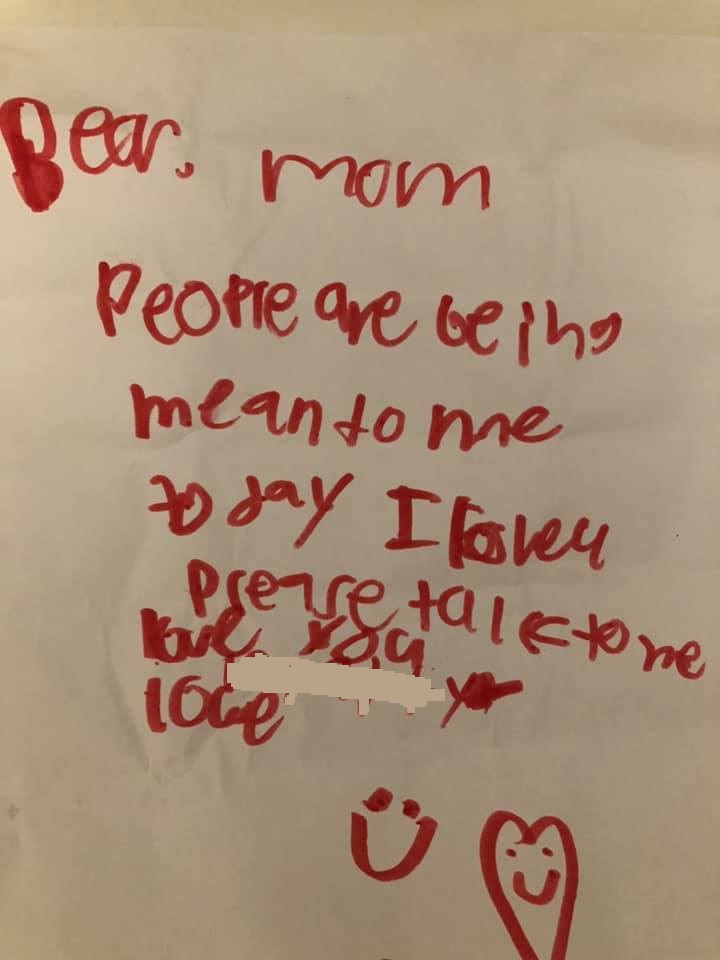 Dear. mom
People are being
mean to me
to day I
Please talk to me
love you
love